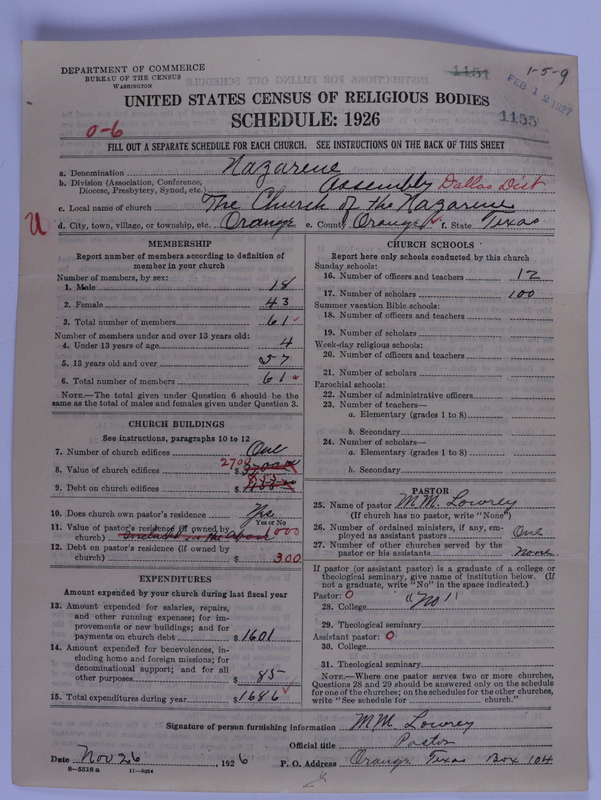 DEPARTMENT OF COMMERCE
BUREAU OF THE CENSUS
WASHINGTON
1151
1-5-9
FEB 12 1927
1155
UNITED STATES CENSUS OF RELIGIOUS BODIES
SCHEDULE: 1926
0-6
FILL OUT A SEPARATE SCHEDULE FOR EACH CHURCH. SEE INSTRUCTIONS ON THE BACK OF THIS SHEET
a. Denomination Nazarene
b. Division (Association, Conference, Diocese, Presbytery, Synod, etc.) Assembly Dallas Dist
c. Local name of church The Church of the Nazarene
U
d. City, town, village, or township, etc. Orange e. County Orange f. State Texas
MEMBERSHIP
Report number of members according to definition of
member in your church
Number of members, by sex:
1. Male 18
2. Female 43
3. Total number of members 61
Number of members under and over 13 years old:
4. Under 13 years of age 4
5. 13 years old and over 57
6. Total number of members 61
NOTE.—The total given under Question 6 should be the
same as the total of males and females given under Question 3.
CHURCH BUILDINGS
See instructions, paragraphs 10 to 12
7. Number of church edifices One
8. Value of church edifices $ 2700
9. Debt on church edifices $
10. Does church own pastor's residence Yes
Yes or No
11. Value of pastor's residence (if owned by
church) Included in the above 1000
12. Debt on pastor's residence (if owned by
church) $ 300
EXPENDITURES
Amount expended by your church during last fiscal year
13. Amount expended for salaries, repairs,
and other running expenses; for im-
provements or new buildings; and for
payments on church debt $ 1601
14. Amount expended for benevolences, in-
cluding home and foreign missions; for
denominational support; and for all
other purposes $ 85
15. Total expenditures during year $ 1686
CHURCH SCHOOLS
Report here only schools conducted by this church
Sunday schools:
16. Number of officers and teachers 12
17. Number of scholars 100
Summer vacation Bible schools:
18. Number of officers and teachers
19. Number of scholars
Week-day religious schools:
20. Number of officers and teachers
21. Number of scholars
Parochial schools:
22. Number of administrative officers
23. Number of teachers—
a. Elementary (grades 1 to 8)
b. Secondary
24. Number of scholars—
a. Elementary (grades 1 to 8)
b. Secondary
PASTOR
25. Name of pastor M.M. Lowrey
(If church has no pastor, write "None")
26. Number of ordained ministers, if any, em-
ployed as assistant pastors One
27. Number of other churches served by the
pastor or his assistants None
If pastor (or assistant pastor) is a graduate of a college or
theological seminary, give name of institution below. (If
not a graduate, write "No" in the space indicated.)
Pastor: 0
28. College "No"
29. Theological seminary
Assistant pastor: 0
30. College
31. Theological seminary
NOTE.—Where one pastor serves two or more churches,
Questions 28 and 29 should be answered only on the schedule
for one of the churches; on the schedules for the other churches,
write "See schedule for church."
Signature of person furnishing information M.M. Lowrey
Official title Pastor
Date Nov 26, 1926 P. O. Address Orange Texas Box 104
8—5518 a 11—9064